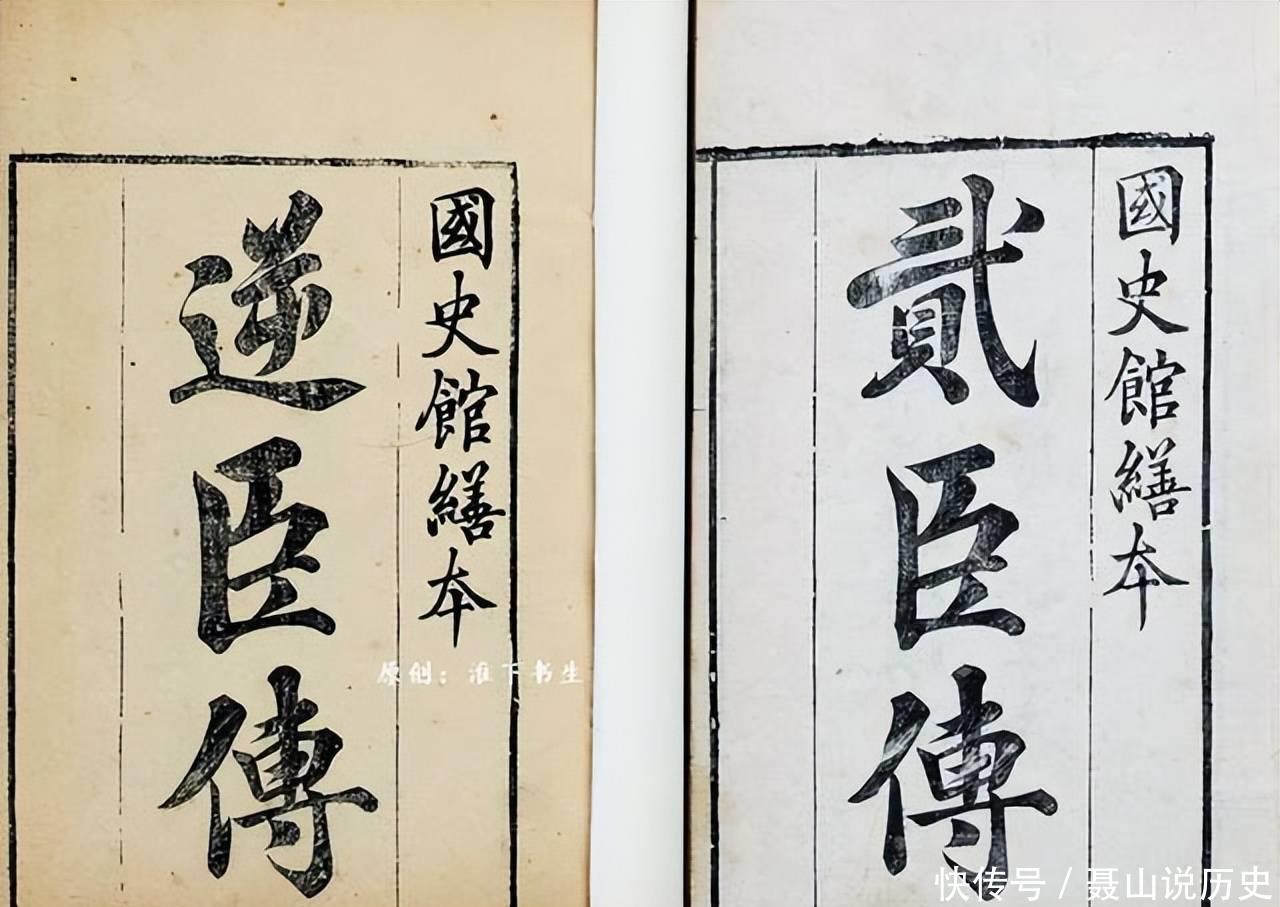 國史館繕本
逆臣傳
國史館繕本
貳臣傳
原创：淮下书生
快传号/聂山说历史